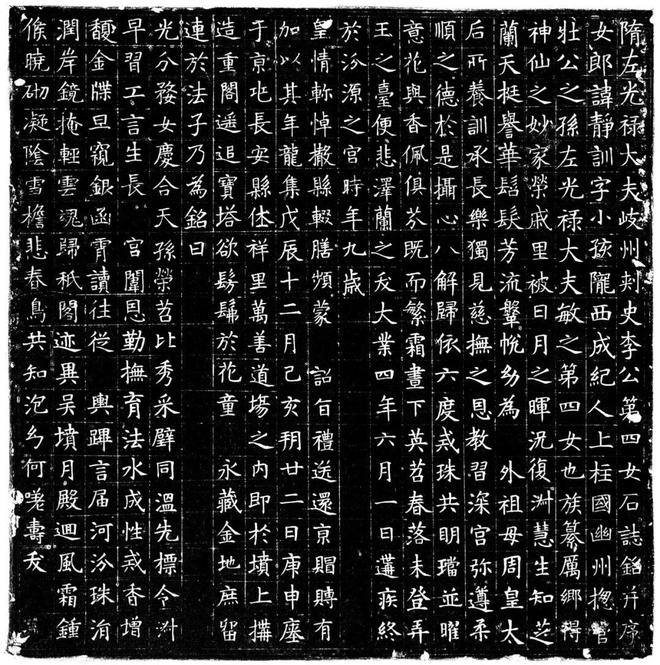 隋左光禄大夫岐州刾史李公第四女石誌銘并序
女郎諱靜訓字小孩隴西成紀人上柱國幽州揔管
壯公之孫左光禄大夫敏之第四女也族纂厲鄉得
神仙之妙家榮戚里被日月之暉況復淑慧生知芝
蘭天挺譽華髫髮芳流鞶帨幼為　外祖母周皇太
后所養訓承長樂獨見慈撫之恩教習深宮彌遵柔
順之德於是攝心八解歸依六度戒珠共明璫並曜
意花與香佩俱芬既而繁霜晝下英苕春落未登弄
王之臺便悲澤蘭之夭大業四年六月一日遘疾終
於汾源之宮時年九歲
皇情軫悼撤縣輟膳頻蒙　詔旨禮送還京賵賻有
加以其年龍集戊辰十二月己亥朔廿二日庚申瘞
于京兆長安縣休祥里萬善道場之内即於墳上搆
造重閣遥追寶塔欲髣髴於花童　永藏金地庶留
連於法子乃為銘曰
光分婺女慶合天孫榮苕比秀采璧同溫先標令淑
早習工言生長　宮闈恩勤撫育法水成性戒香增
馥金牒旦窺銀函霄讀往從　輿蹕言屆河汾珠涓
潤岸鏡掩輕雲魂歸秪閣迹異吴墳月殿迴風霜鍾
候曉砌凝陰雪檐悲春鳥共知泡幻何嗟壽夭